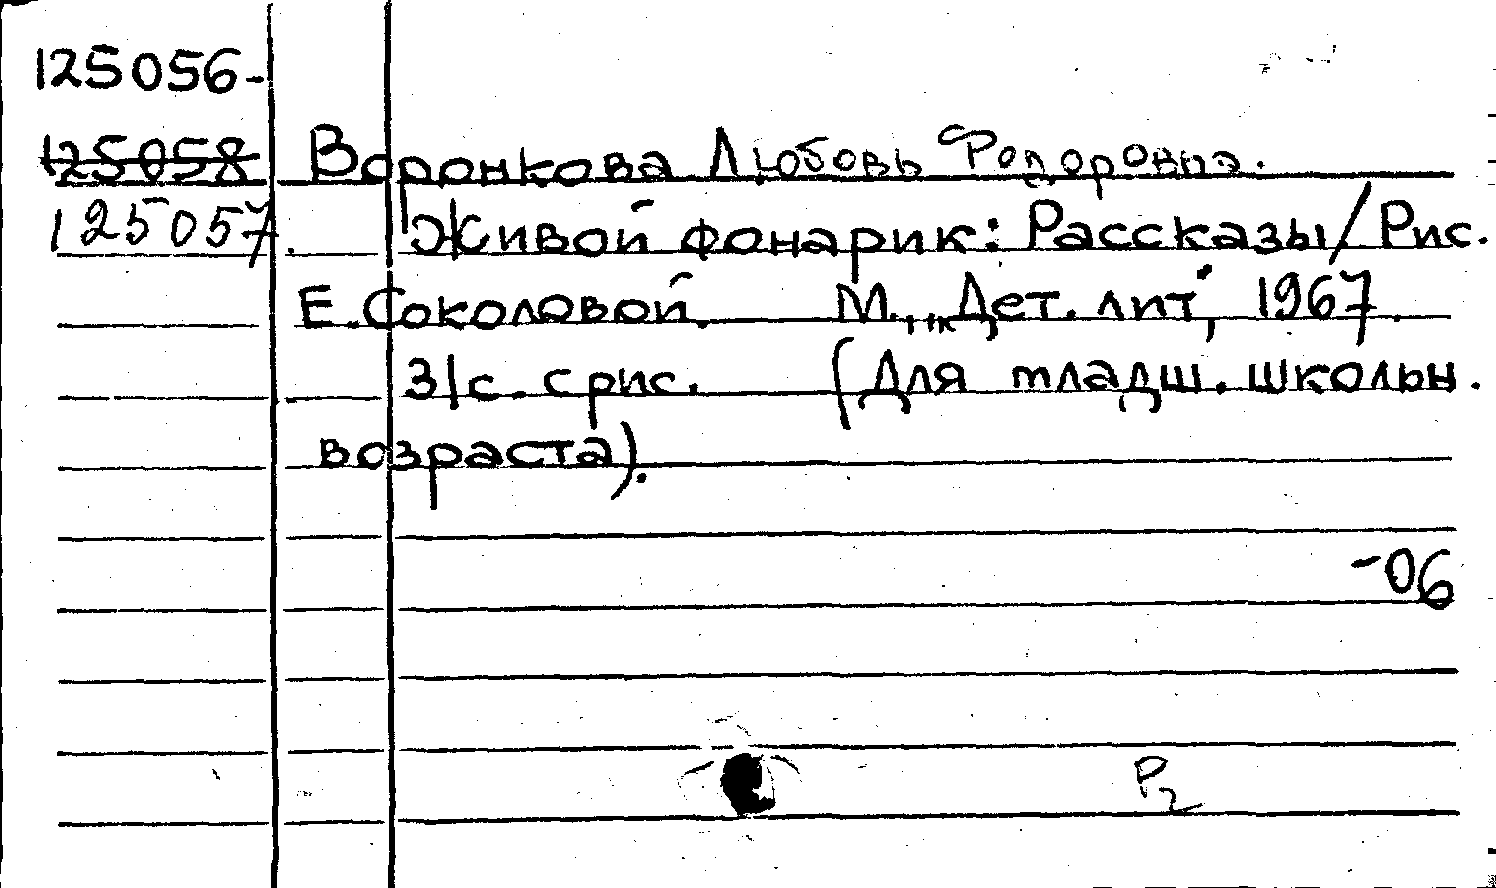 125056-
125058 Воронкова Любовь Федоровна.
125057. Живой фонарик: Рассказы/Рис.
Е. Соколовой. М., "Дет. лит", 1967.
31с. с рис. (Для младш. школьн.
возраста).
-06
Р2